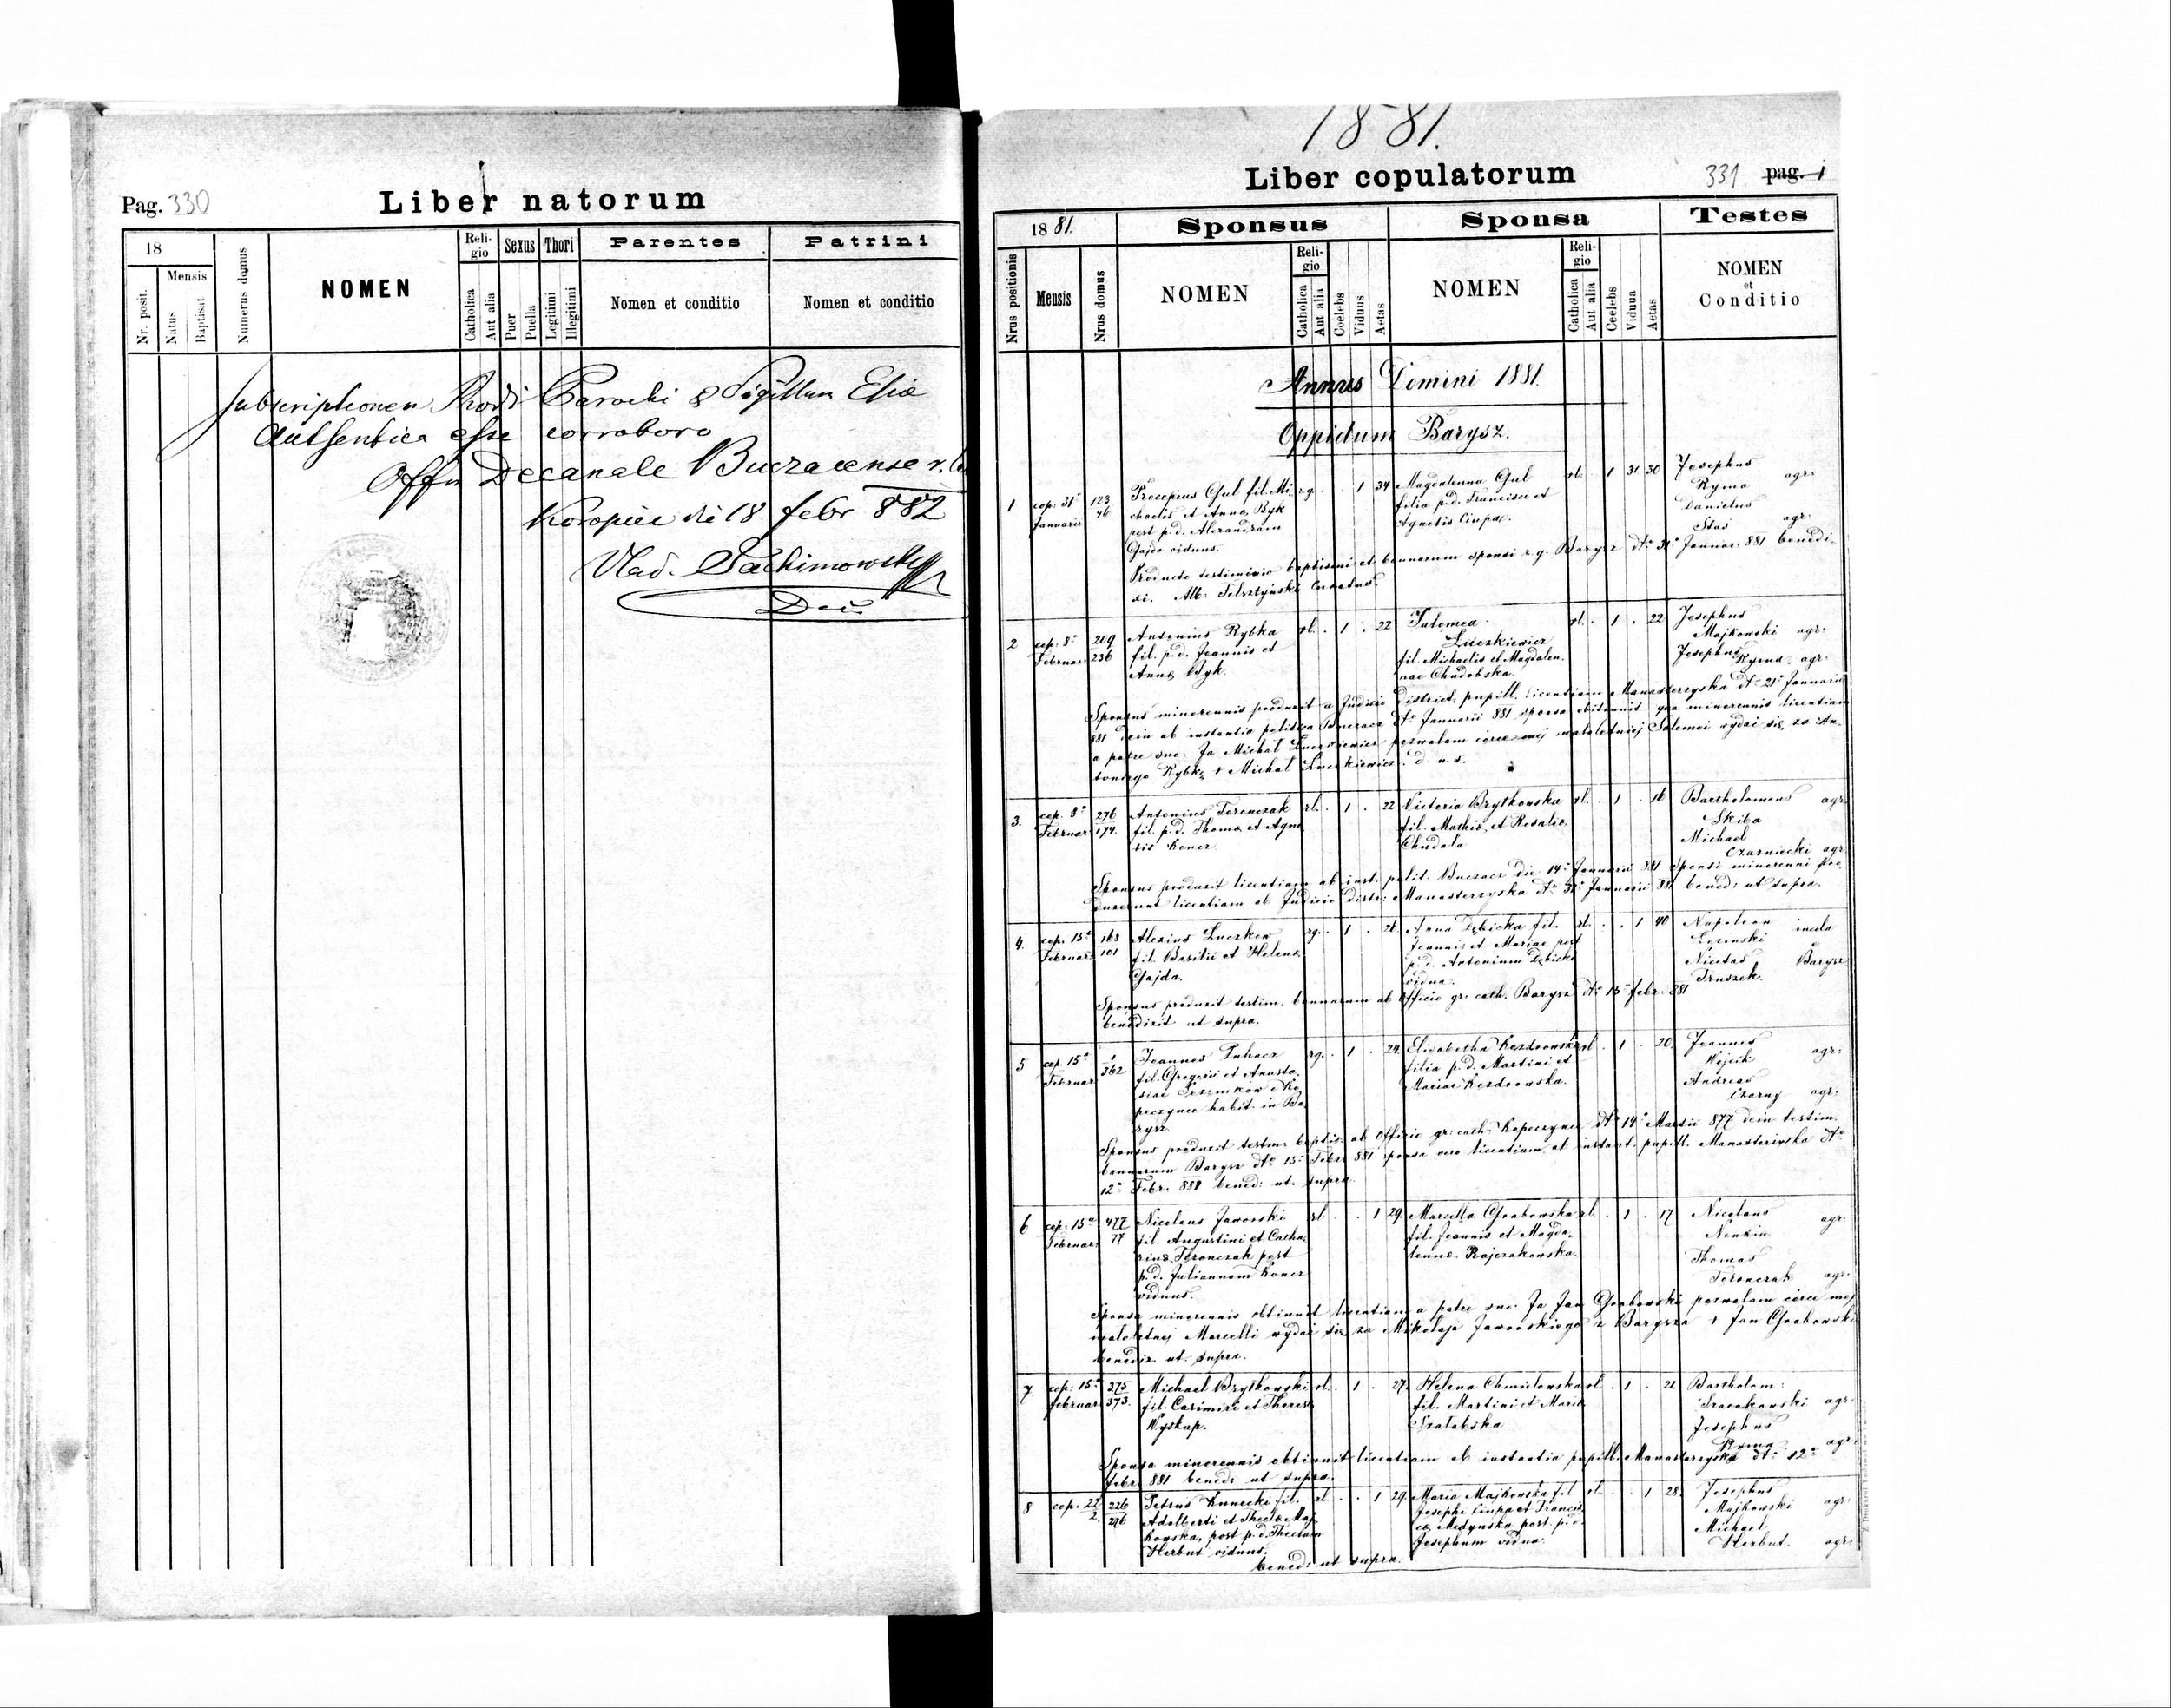 Pag. 330
Liber natorum
18
Nr. posit.
Mensis
Natus
Baptisat
Numerus domus
NOMEN
Religio
Catholica
Aut alia
Sexus
Puer
Puella
Thori
Legitimi
Illegitimi
Parentes
Nomen et conditio
Patrini
Nomen et conditio
Subscriptionem Rndi Parochi & Sigillum Eliæ
authentica esse corroboro
Off Decanale Buczacense r. l.
Koropiec die 18 febr 882
Vlad. Sachimowski
Dec
1881.
Liber copulatorum
331 pag. 1
1881.
Nrus positionis
Mensis
Nrus domus
Sponsus
NOMEN
Religio
Catholica
Aut alia
Coelebs
Viduus
Aetas
Sponsa
NOMEN
Religio
Catholica
Aut alia
Ceelebs
Vidua
Aetas
Testes
NOMEN
et
Conditio
Annus Domini 1881.
Oppidum Barysz.
1 cop: 31ª Januarii
123
46
Procopius Gul fil. Mi-
chaelis et Anna Byk
post p.d. Alexandram
Gajda viduus.
rg. . . 1 34
Magdalenna Gul
filia p.d. Francisci et
Agnetis Ciupa.
rl. 1 31 30
Josephus
Ryma agr:
Danielus
Stas agr:
Producto testimonio baptismi et bannorum sponsi r.g. Barysz dto 31ª Januar: 881 benedi-
xi. Alb: Felsztyński Curatus.
2 cop: 8ª Februar:
209
236
Antonius Rybka
fil. p.d. Joannis et
Anna Byk.
rl. . 1 . 22
Salomea
Luczkiewicz
fil. Michaelis et Magdalen-
nae Chudobska.
rl. . 1 . 22
Josephus
Majkowski agr:
Josephus
Ryma agr:
Sponsus minorennis produxit a Judicio District. pupill. licentiam Manasterzyska dto 21ª Januarii
881 dein ab instantia politica Buczacz dto Januarii 881 sponsa obtinuit qua minorennis licentiam
a patre suo: Ja Michał Luczkiewicz pozwalam córce mej małoletniej Salomei wydać się za An-
toniego Rybkę + Michał Luczkiewicz. d. u. s.
3. cop. 8ª Februar:
276
174.
Antonius Feronczak
fil. p.d. Thoma et Agne
tis Koncz.
rl. . 1 . 22
Victoria Brytkowska
fil. Mathia et Rosalia
Chudala
rl. . 1 . 16
Bartholomeus agr:
Skiba
Michael
Czarniecki agr:
Sponsus produxit licentiam ab inst. polit. Buczacz die 14ª Januarii 881 Sponsi minorenni pro-
duxerunt licentiam ab Judicio distr: Manasterzyska dto 31ª Januarii 881 bened: ut supra.
4. cop. 15ª Februar:
168
101
Alexius Luczkow
fil. Basilii et Helena
Gajda.
rg. . 1 . 26.
Anna Dębicka fil.
Joannis et Mariae post
p.d. Antonium Dębicki
vidua.
rl. . . 1 40
Napoleon incola
Lozinski
Nicetas Barysz
Truszek.
Sponsus produxit testim. bannorum ab Officio gr: cath. Barysz dto 15ª febr: 881
benedixit ut supra.
5 cop. 15ª Februar
1
362
Joannes Puhacz
fil. Gregorii et Anasta-
siae
peczynce habit. in Ba-
rysz.
rg. . 1 . 24.
Elisabetha Kozdrowska
filia p.d. Martini et
Mariae Kozdrowska.
rl . 1 . 20.
Joannes
Wojcik agr:
Andreas
Czarny agr:
Sponsus produxit testim. baptis. ab Officio gr: cath. Kopeczynce dto 14ª Martii 877 dein testim.
bannorum Barysz dto 15ª Febr: 881 sponsa vero licentiam ab instant. pupill. Manasteriska dto
12ª Febr. 881 bened: ut. supra
6 cop: 15ª Februar:
477
77
Nicolaus Jaworski
fil. Augustini et Catha-
rina Feronczak post
p.d. Juliannam Koncz
viduus.
rl . . 1 29.
Marcella Grabowska
fil. Joannis et Magda-
lenna Rajczakowska.
rl. . 1 . 17
Nicolaus agr:
Nenkin
Thomas
Feronczak agr:
Sponsa minorennis obtinuit licentiam a patre suo: Ja Jan Grabowski pozwalam córce mej
małoletniej Marcelli wydać się za Mikołaja Jaworskiego z Barysza + Jan Grabowski
benedix. ut supra.
7 cop: 15ª februar:
275
373.
Michael Brytkowski
fil. Casimiri et Theresa
Wyskup.
rl. . 1 . 27.
Helena Chmielowska
fil. Martini et Maria
Szatabska
rl. . 1 . 21.
Bartholom:
agr:
Josephus
Ryma agr:
Sponsa minorennis obtinuit licentiam ab instantia pupill. Manasterzyska dto 12ª
febr. 881 bened: ut supra.
8 cop. 22/2.
226
276
Petrus Kunecki fil.
Adalberti et Thecla Maj-
kowska, post p.d. Theclam
Herbut viduus.
rl. . . 1 29.
Maria Majkowska fil
Josephi Ciupa et Francis-
ca Medynska post. p.d.
Josephum vidua.
rl. . . 1 28.
Josephus
Majkowski agr:
Michael
Herbut. agr:
bened: ut supra.